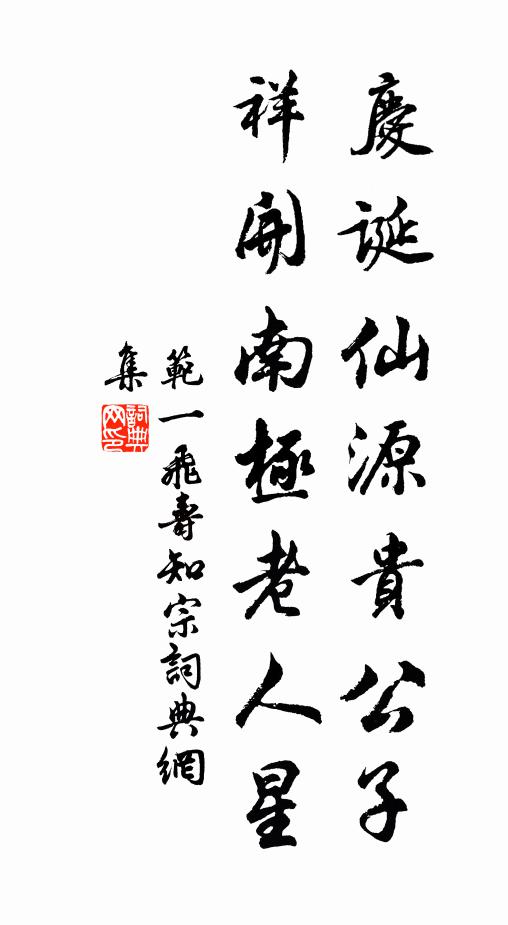 慶誕仙源貴公子
祥開南極老人星
範一飛壽知宗詞典網
集
詞典网印